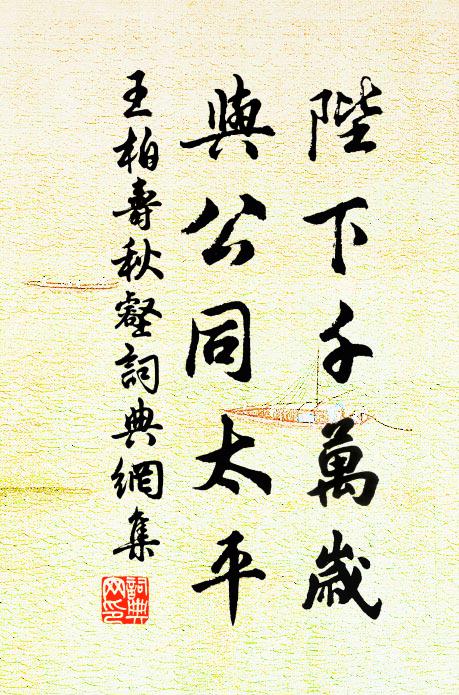 陛下千萬歲
與公同太平
王柏壽秋壑詞典網集
詞典
网印